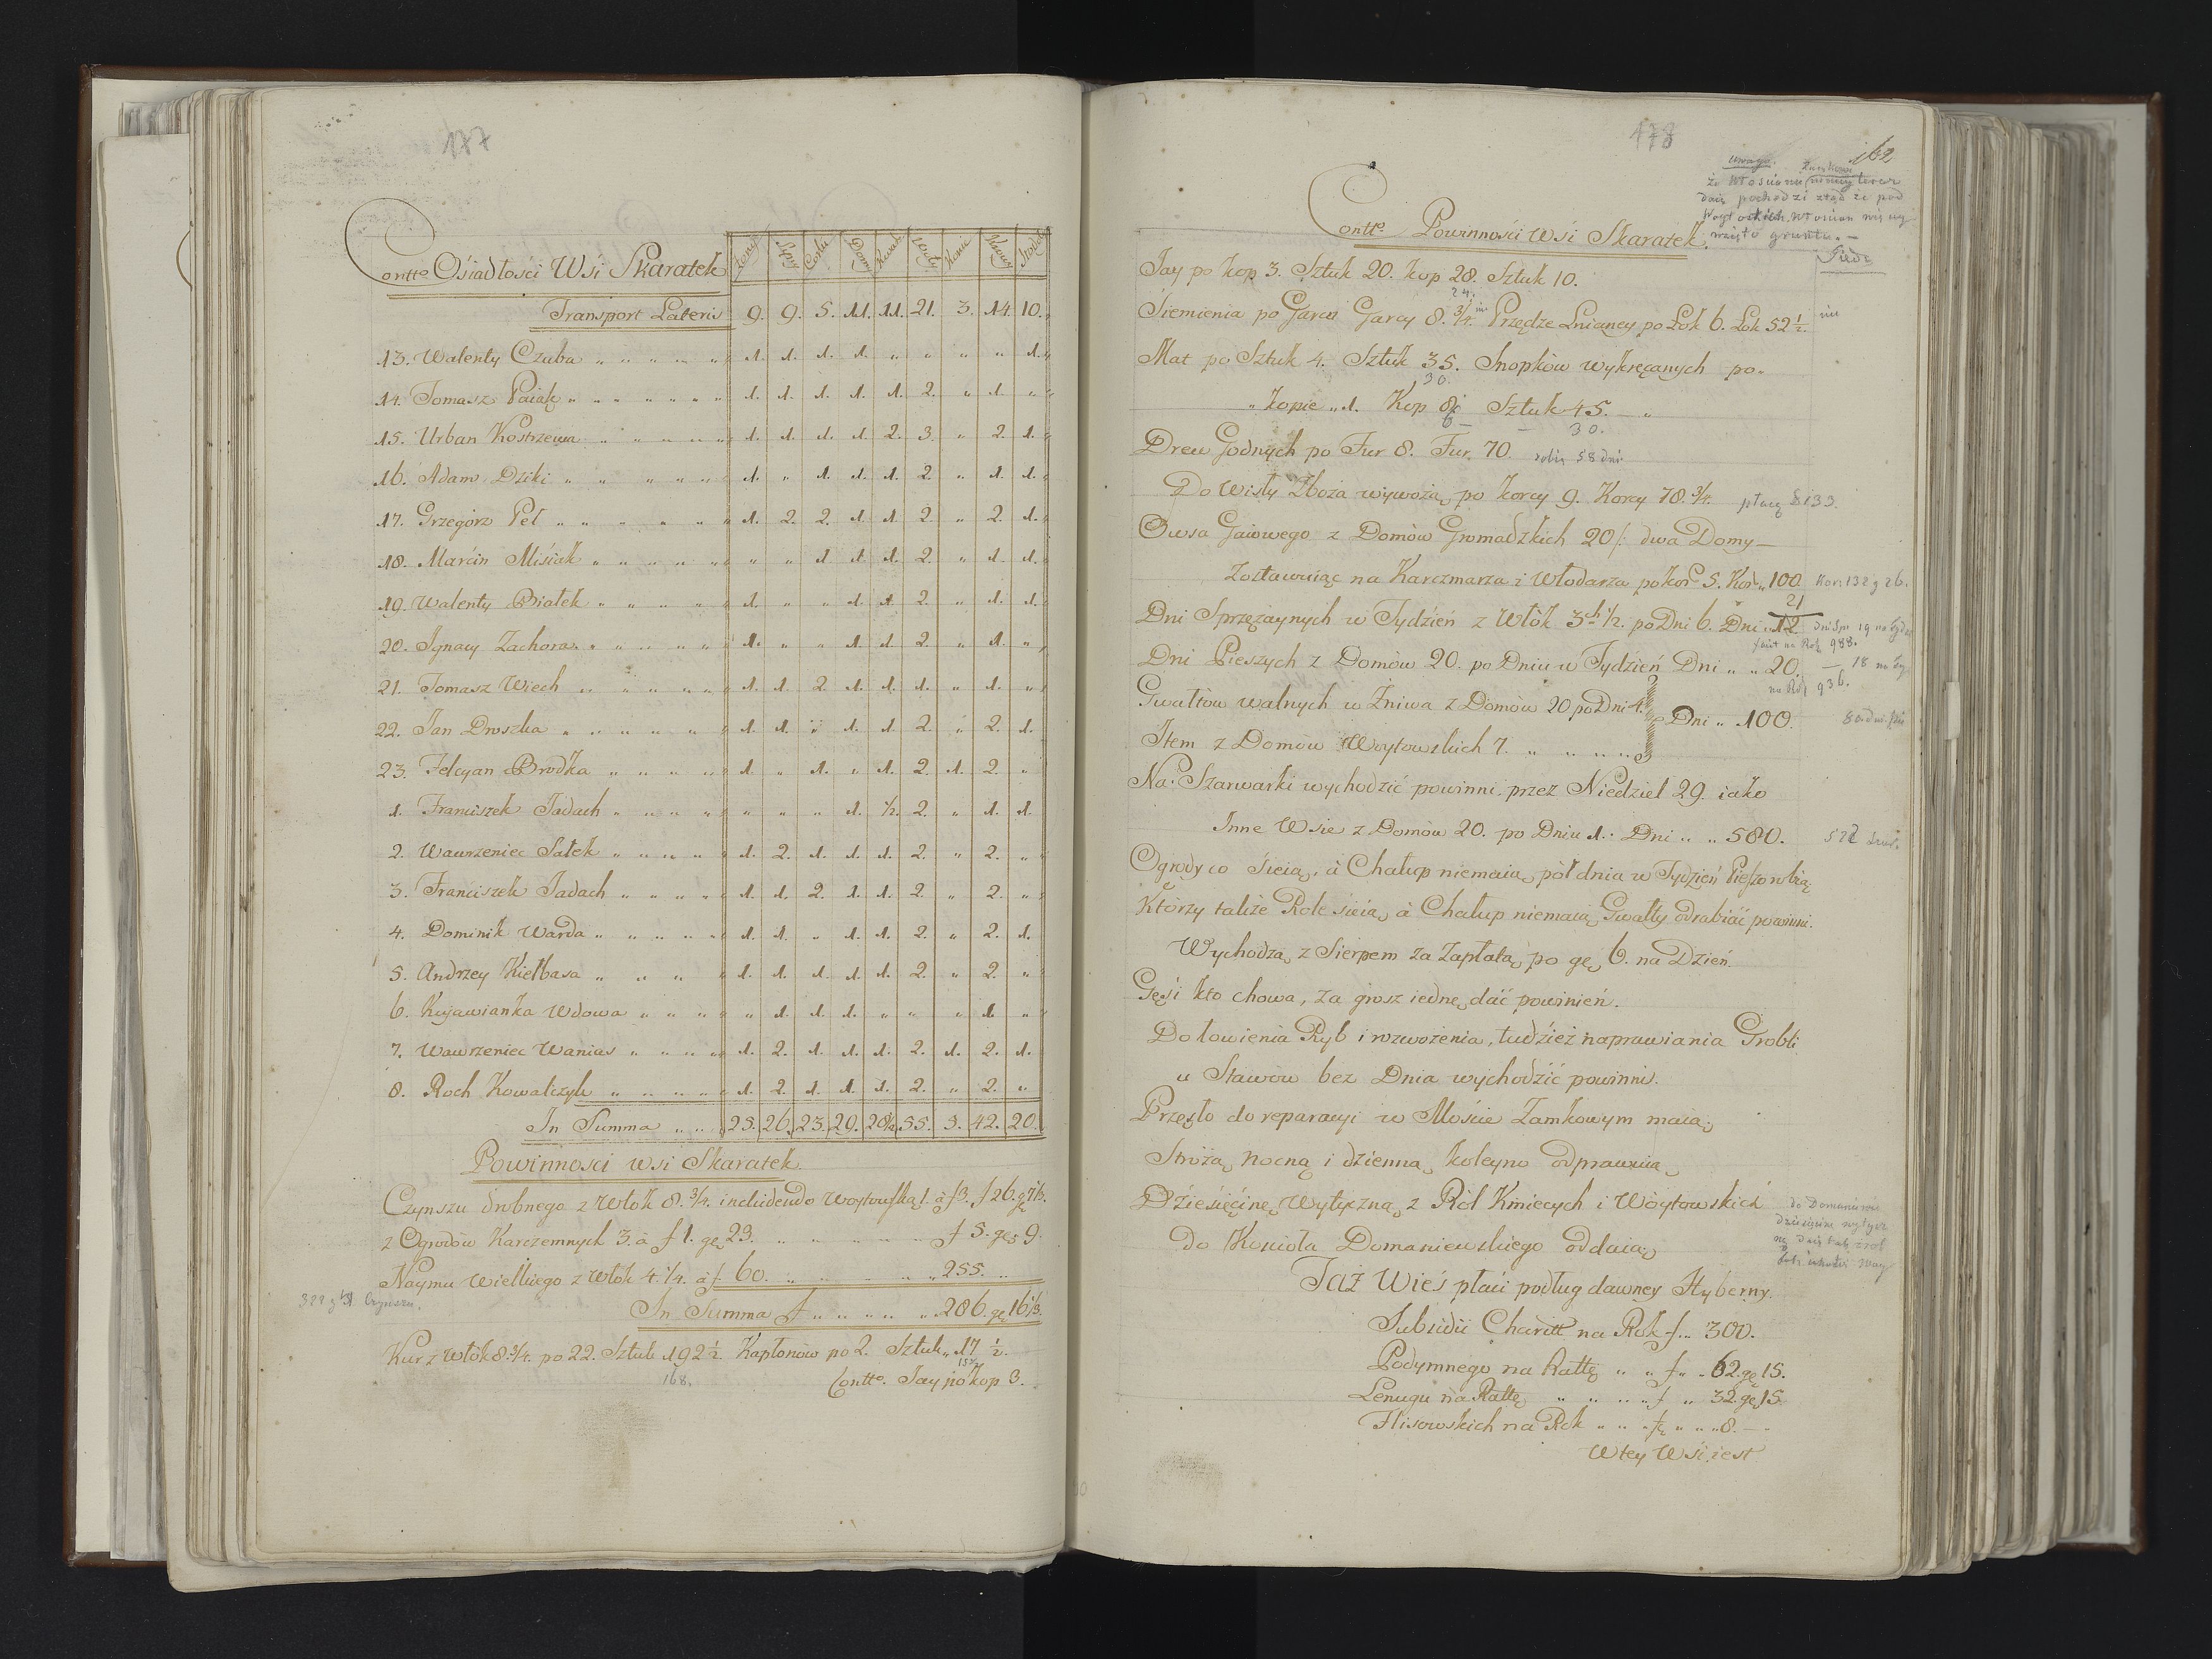 177
Contto Osiadłości Wsi Skaratek
Żony Syny Córki Domy Kwart. Woły Konie Krowy Stodoły
Transport Lateris 9. 9. 5. 11. 11. 21. 3. 14. 10.
13. Walenty Czuba " " " " " 1. 1. 1. 1. " " " " 1.
14. Tomasz Paiąk " " " " " " 1. 1. 1. 1. 1. 2. " 1. "
15. Urban Kostrzewa " " " " 1. 1. 1. 1. 2. 3. " 2. 1.
16. Adam Dziki " " " " " 1. " 1. 1. 1. 2. " 1. 1.
17. Grzegórz Pel " " " " " 1. 2. 2. 1. 1. 2. " 2. 1.
18. Marcin Misiak " " " " " " " 1. 1. 1. 2. " 1. 1.
19. Walenty Białek " " " " " 1. " " 1. 1. 2. " 1. 1.
20. Ignacy Zachora " " " " " 1. " " 1. 1. 2. " 1. "
21. Tomasz Wiech " " " " " 1. 1. 2. 1. 1. 1. " 1. "
22. Jan Droszka " " " " " 1. 1. " 1. 1. 2. " 2. 1.
23. Felcyan Brodka " " " " 1. " 1. " 1. 2. 1. 2. "
1. Franciszek Jadach " " " " " " " 1. ½. 2. " 1. 1.
2. Wawrzeniec Sałek " " " " 1. 2. 1. 1. 1. 2. " 2. "
3. Franciszek Jadach " " " " 1. 1. 2. 1. 1. 2. " 2. "
4. Dominik Warda " " " " 1. 1. " 1. 1. 2. " 2. 1.
5. Andrzey Kiełbasa " " " " 1. 1. 1. 1. 1. 2. " 2. "
6. Kujawianka Wdowa " " " " " 1. 1. 1. " " " 1. "
7. Wawrzeniec Wanias " " " " 1. 2. 1. 1. 1. 2. 1. 2. 1.
8. Roch Kowalczyk " " " " " 1. 2. 1. 1. 1. 2. " 2. "
In Summa " " " 25. 26. 23. 29. 28½ 55. 5. 42. 20.
Powinnosci wsi Skaratek
Czynszu drobnego z Włok 8.¾. includendo Woytowską 1. à f 3. f 26. gr 7½.
z Ogrodów Karczemnych 3. à f 1. gr 23. " " " " " f 5. gr 9.
Naymu Wielkiego z Włok 4.¼. à f 60. " " " " 255. "
In Summa f " " " " " 286. gr 16⅓.
Czynszu.
Kur z Włók 8.¾. po 22. Sztuk 192½ Kapłonów po 2. Sztuk " 17½.
168.
Contto. Jay po kop 3.
178
162
uwaga.
że Włościanie teraz
dają pochodzi ztąd że pod
wzięto gruntu. —
Contto Powinności Wsi Skaratek
Jay po kop 3. Sztuk 20. kop 28. Sztuk 10.
24.
Siemienia po Garcu Garcy 8.¾. Przędze Lnianey po Łok 6. Łok 52½. nie
Mat po Sztuk 4. Sztuk 35. Snopków wykręcanych po "
30.
" kopie " 1. Kop 8 Sztuk 45. — "
6 — 30.
Drew Godnych po Fur 8. Fur. 70. robią 58 dni
Do Wisły Zboża wywożą po korcy 9. Korcy 78.¾. płacą f 133.
Owsa Gaiowego z Domów Gromadzkich 20 /: dwa Domy —
Zostawuiąc na Karczmarza i Włodarza po kor. 5. Kor. " 100. Kor. 132 g 26.
21
Dni Sprzężaynych w Tydzień z Włók 3 ½. po Dni 6. Dni " 12. dni Sp. 19 na tydz
na Rok 988.
Dni Pieszych z Domów 20. po Dniu w Tydzień Dni " " 20. — 18 na ty
na Rok 936.
Gwałtów walnych w Żniwa z Domów 20 po Dni 4.
Dni " 100. 80 dni
Item z Domów Woytowskich 7. " " " " "
Na Szarwarki wychodzić powinni przez Niedziel 29. iako
Inne Wsie z Domów 20. po Dniu 1. Dni " " 580. 522
Ogrody co sieią, à Chałup niemaią, pół dnia w Tydzień Pieszo robią
Którzy także Role sieią, à Chałup niemaią, Gwałty odrabiać powinni.
Wychodzą z Sierpem za Zapłatą po gr. 6. na Dzień.
Gęsi kto chowa, za grosz iednę dać powinień.
Do łowienia Ryb i rozwożenia, tudzież naprawiania Grobli
u Stawów bez Dnia wychodzić powinni.
Przęsło do reparacyi w Moście Zamkowym maią
Stróżą nocną i dzienną koleyno odprawuią
Dziesięcinę Wytyczną z Ról Kmiecych i Woytowskich
do Kościoła Domaniewskiego oddaią
do Domaniewa
dziesięcinę wytycz
Taż Wieś płaci podług dawney Hyberny.
Subsidii Charitt na Rok f " 300.
Podymnego na Rattę " " f " 62. gr 15.
Lenugu na Rattę " " " f " 32. gr 15.
Flisowskich na Rok " " " f " " " 8. — "
W tey Wsi iest